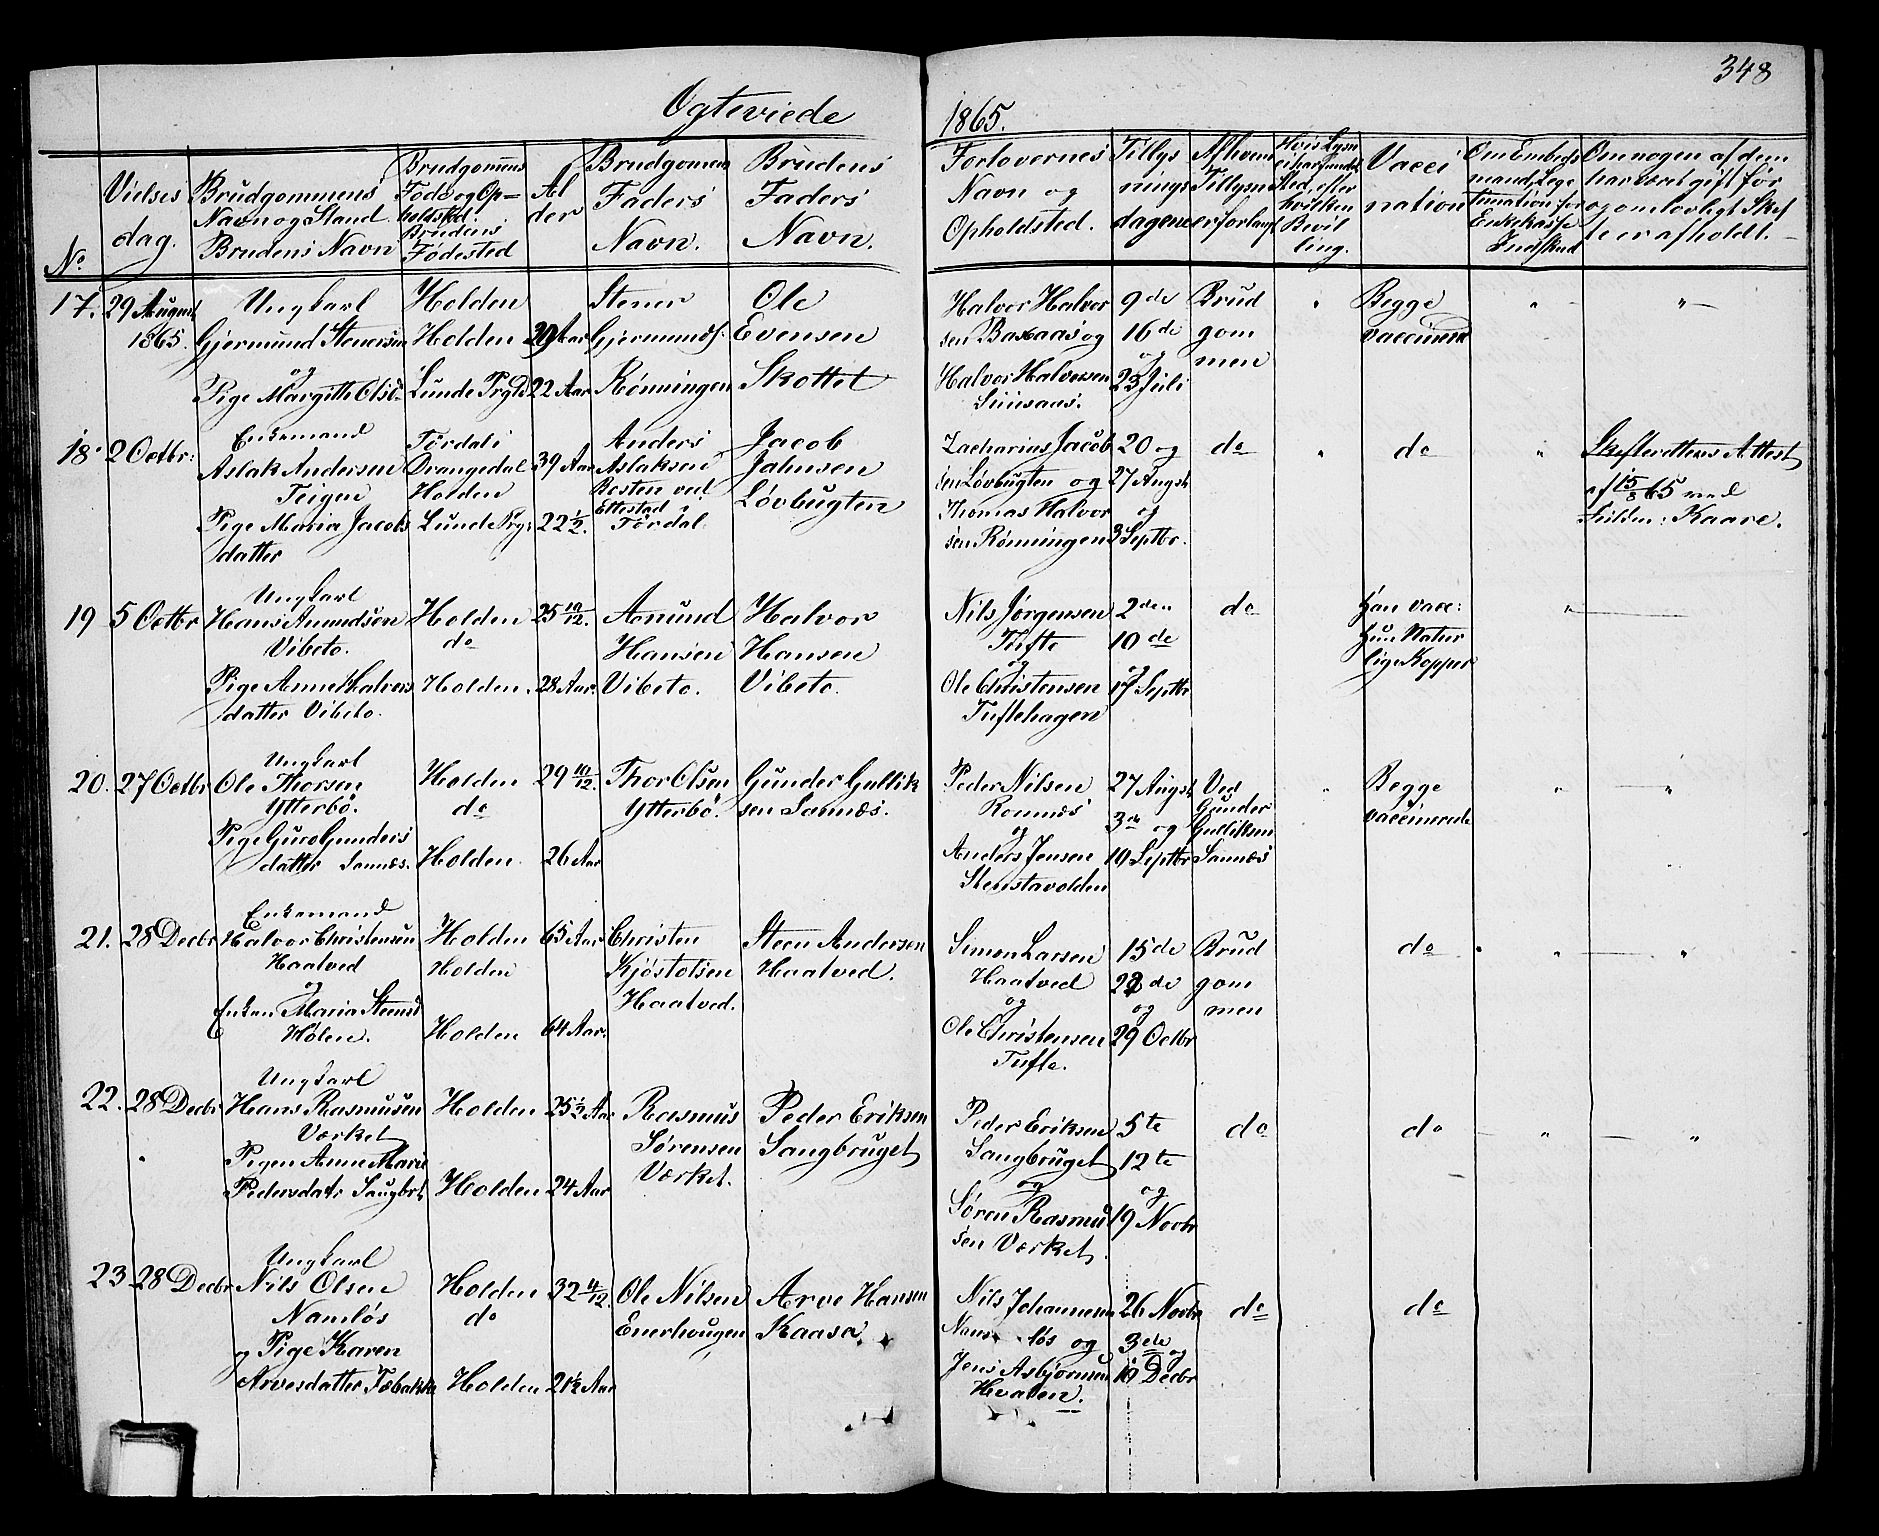 348
Ogteviede
1865.
No
Vielses
dag.
Brudgommens
Navn og Stand.
Brudens Navn
Brudgomens
Føde og Op=
holdsted.
Brudens
Fødested
Al
der
Brudgomens
Faders
Navn.
Brudens
Faders
Navn.
Forlovernes
Navn og
Opholdsted.
Tillys
nings
dagene
Af hvem
Tillysn
er forlangt
Hvis Lysn
ei har fundet
Sted, efter
hvilken
Bevil
ling.
Vacci
nation
Om Embeds
mand, Lege
timation for
Enkekasse
Indskud
Om nogen af dem
har været gift før
og om lovligt Skif
te er afholdt.
17. 29 August
1865.
Ungkarl
Gjermund Stenersen
og
Pige Margith Olsd.
Holden
Holden
Lunde Prgld
29 Aar
22 Aar
Stener
Gjermunds.
Rønningen
Ole
Evensen
Skottet
Halvor Halvor
sen Basaas og
Halvor Halvorsen
9de
16de
og
23 Juli
Brud
gom
men
Begge
vaccinered
18. 2 Octbr:
Enkemand
Aslak Andersen
Teigen
Pige Maria Jacobs
datter
Tørdal i
Drangedal
Holden
Lunde Prg:
39 Aar
22 1/2.
Anders
Aslaksen
Bosten ved
Ettestad i
Tørdal.
Jacob
Jahnsen
Løvbugten
Zacharius Jacob
sen Løvbugten og
Thomas Halvor
sen Rønningen
20 og
27 Augst
og
3 Septbr.
do
do
Skifterettens Attest
af 15/8 65 ved
Fulden: Kaare.
19 5 Octbr
Ungkarl
Hans Amundsen
Vibeto.
Pige Anne Halvors
datter Vibeto.
Holden
do
Holden.
25 10/12.
28 Aar.
Amund
Hansen
Vibeto.
Halvor
Hansen
Vibeto.
Nils Jørgensen
Tufte
og
Ole Christensen
Tuftehagen
2den
10de
og
17 Septbr
do
Han vacc:
Hun Natur
lige Kopper
20. 27 Octbr
Ungkarl
Ole Thorsen
Ytterbø.
Pige Guro Gunders
datter Sannæs.
Holden
do
Holden.
29 10/12.
26 Aar
Thor Olsen
Ytterbø.
Gunder Gullik
sen Sannæs.
Peder Nilsen
Romnæs
og
Anders Jensen
Stenstavolden
27 Augst
3de og
10 Septbr
Ved
Gunder
Gulliksen
Sannæs
Begge
vaccinerede
21. 28 Decbr
Enkemand
Halvor Christensen
Haatved
og
Enken Maria Steensd
Hølen.
Holden
Holden
Holden
65 Aar
64 Aar.
Christen
Kjøstolsen
Haatved.
Steen Andersen
Haatved.
Simen Larsen
Haatved
og
Ole Christensen
Tufte.
15de
22de
og
29 Octbr
Brud
gom
men
do
22. 28 Decbr
Ungkarl
Hans Rasmusen
Værket
Pigen Anne Marie
Pedersdatr Saugbrt
Holden
Holden
25 1/2 Aar
24 Aar
Rasmus
Sørensen
Værket.
Peder Eriksen
Saugbruget
Peder Eriksen
Saugbruget
og
Søren Rasmu
sen Værket.
5te
12te
og
19 Novbr
do
do
23 28 Decbr
Ungkarl
Nils Olsen
Namløs
og Pige Karen
Arvesdatter Tobakke
Holden
do
Holden
32 4/12.
21 1/2 Aar
Ole Nilsen
Enerhougen
Arve Hansen
Kaasa
Nils Johannesen
Nam løs og
Jens Asbjørnsen
Hvalen.
26 Novbr
3die og
10 Decbr
do
do